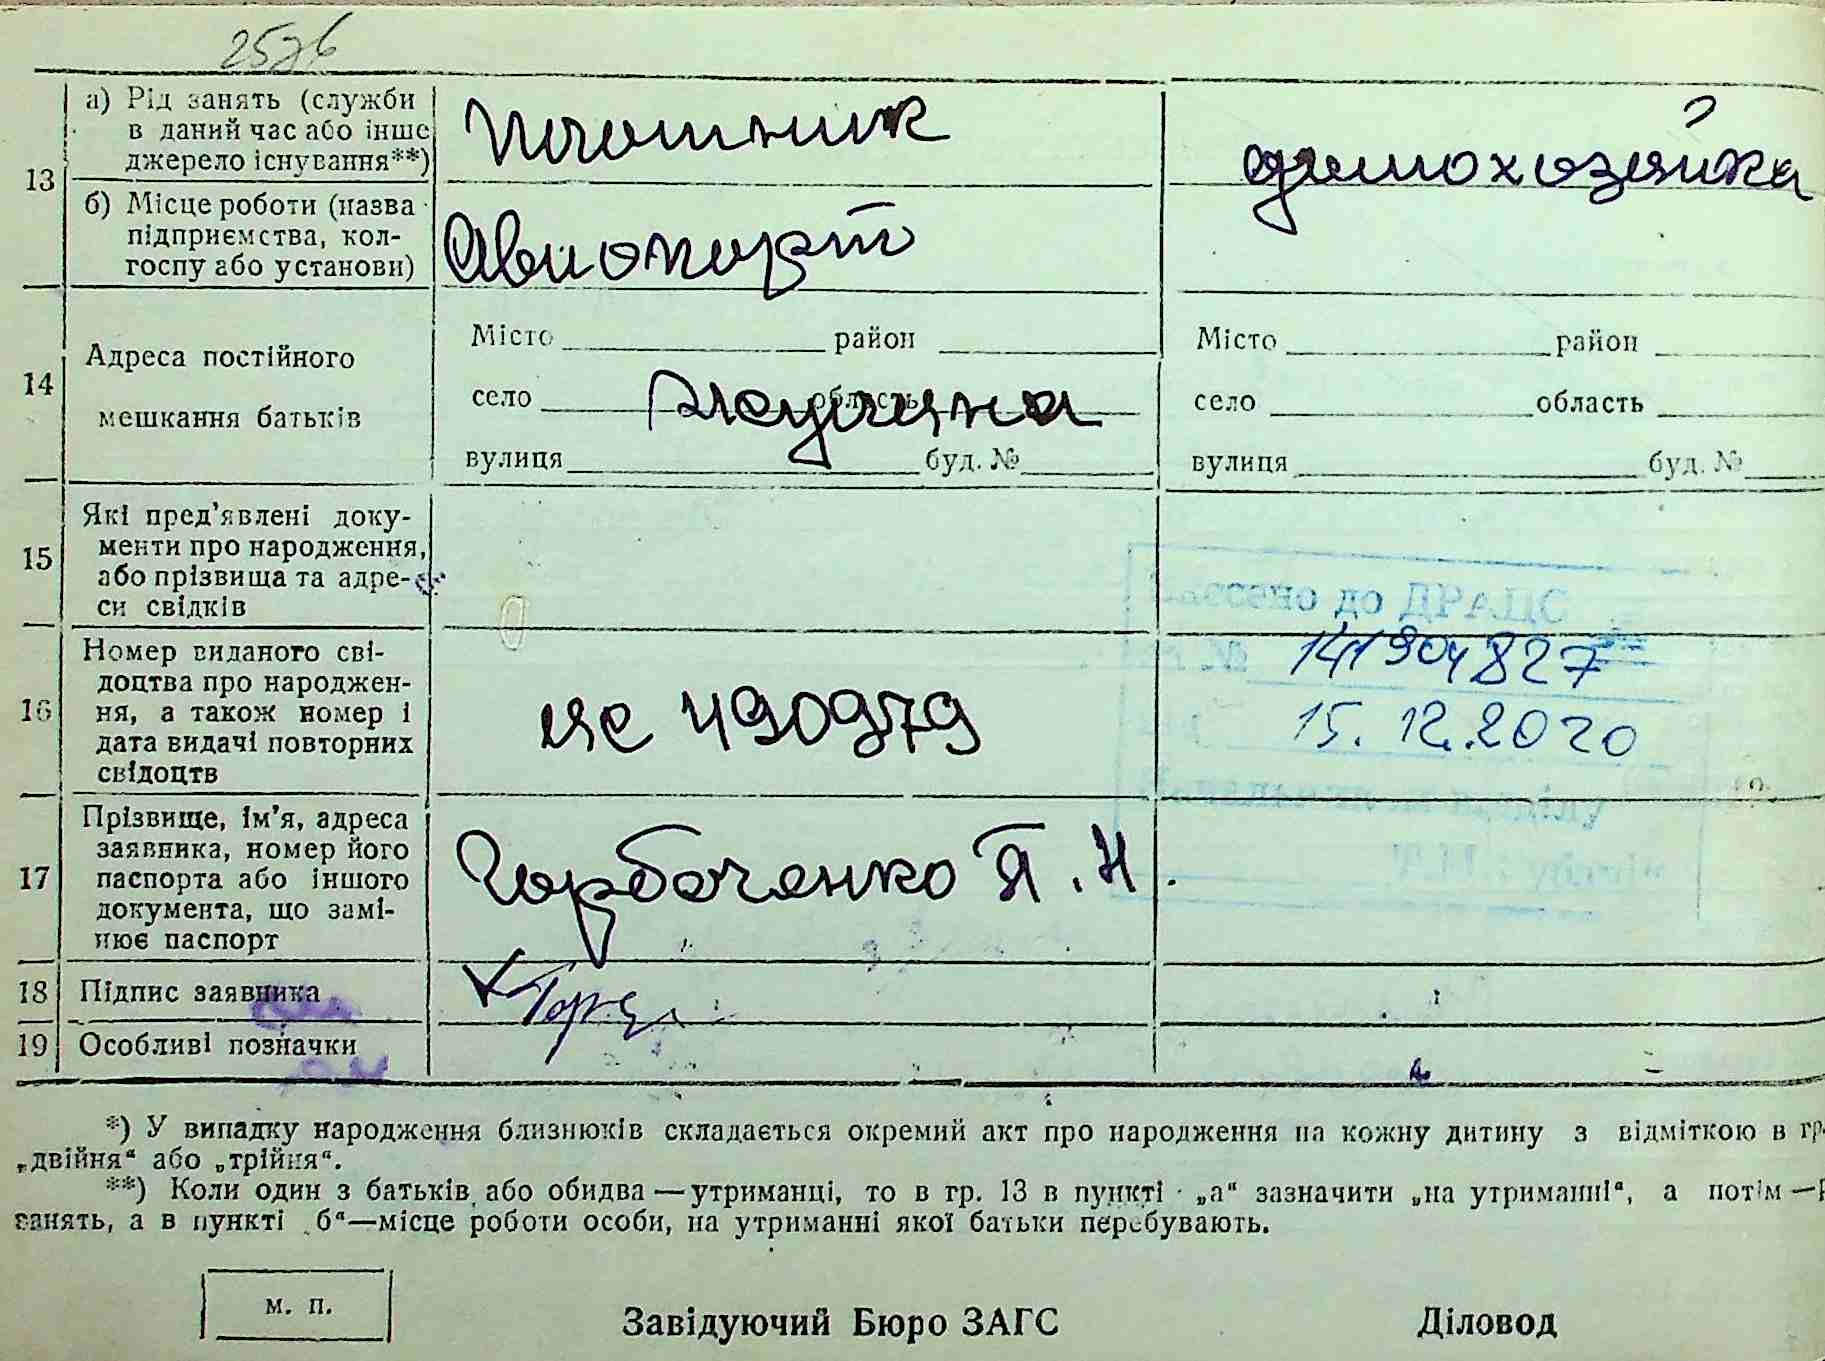 а) Рід занять (служби
в даний час або інше
джерело існування**)
13
домохозяйка
б) Місце роботи (назва
підприємства, кол-
госпу або установи)
Авиопорт
14
Адреса постійного
мешкання батьків
Місто район
село область
вулиця буд. №
Місто район
село область
вулиця буд. №
15
Які пред’явлені доку-
менти про народження,
або прізвища та адре-
си свідків
до ДРАЦС
16
Номер виданого сві-
доцтва про народжен-
ня, а також номер і
дата видачі повторних
свідоцтв
490979
№ 141904827
15.12.2020
17
Прізвище, ім’я, адреса
заявника, номер його
паспорта або іншого
документа, що замі-
нює паспорт
Горбаченко Я. Н.
18 Підпис заявника
19 Особливі позначки
*) У випадку народження близнюків складається окремий акт про народження на кожну дитину з відміткою в гр.
„двійня“ або „трійня“.
**) Коли один з батьків або обидва — утриманці, то в гр. 13 в пункті „а“ зазначити „на утриманні“, а потім —
занять, а в пункті „б“ — місце роботи особи, на утриманні якої батьки перебувають.
м. п.
Завідуючий Бюро ЗАГС
Діловод